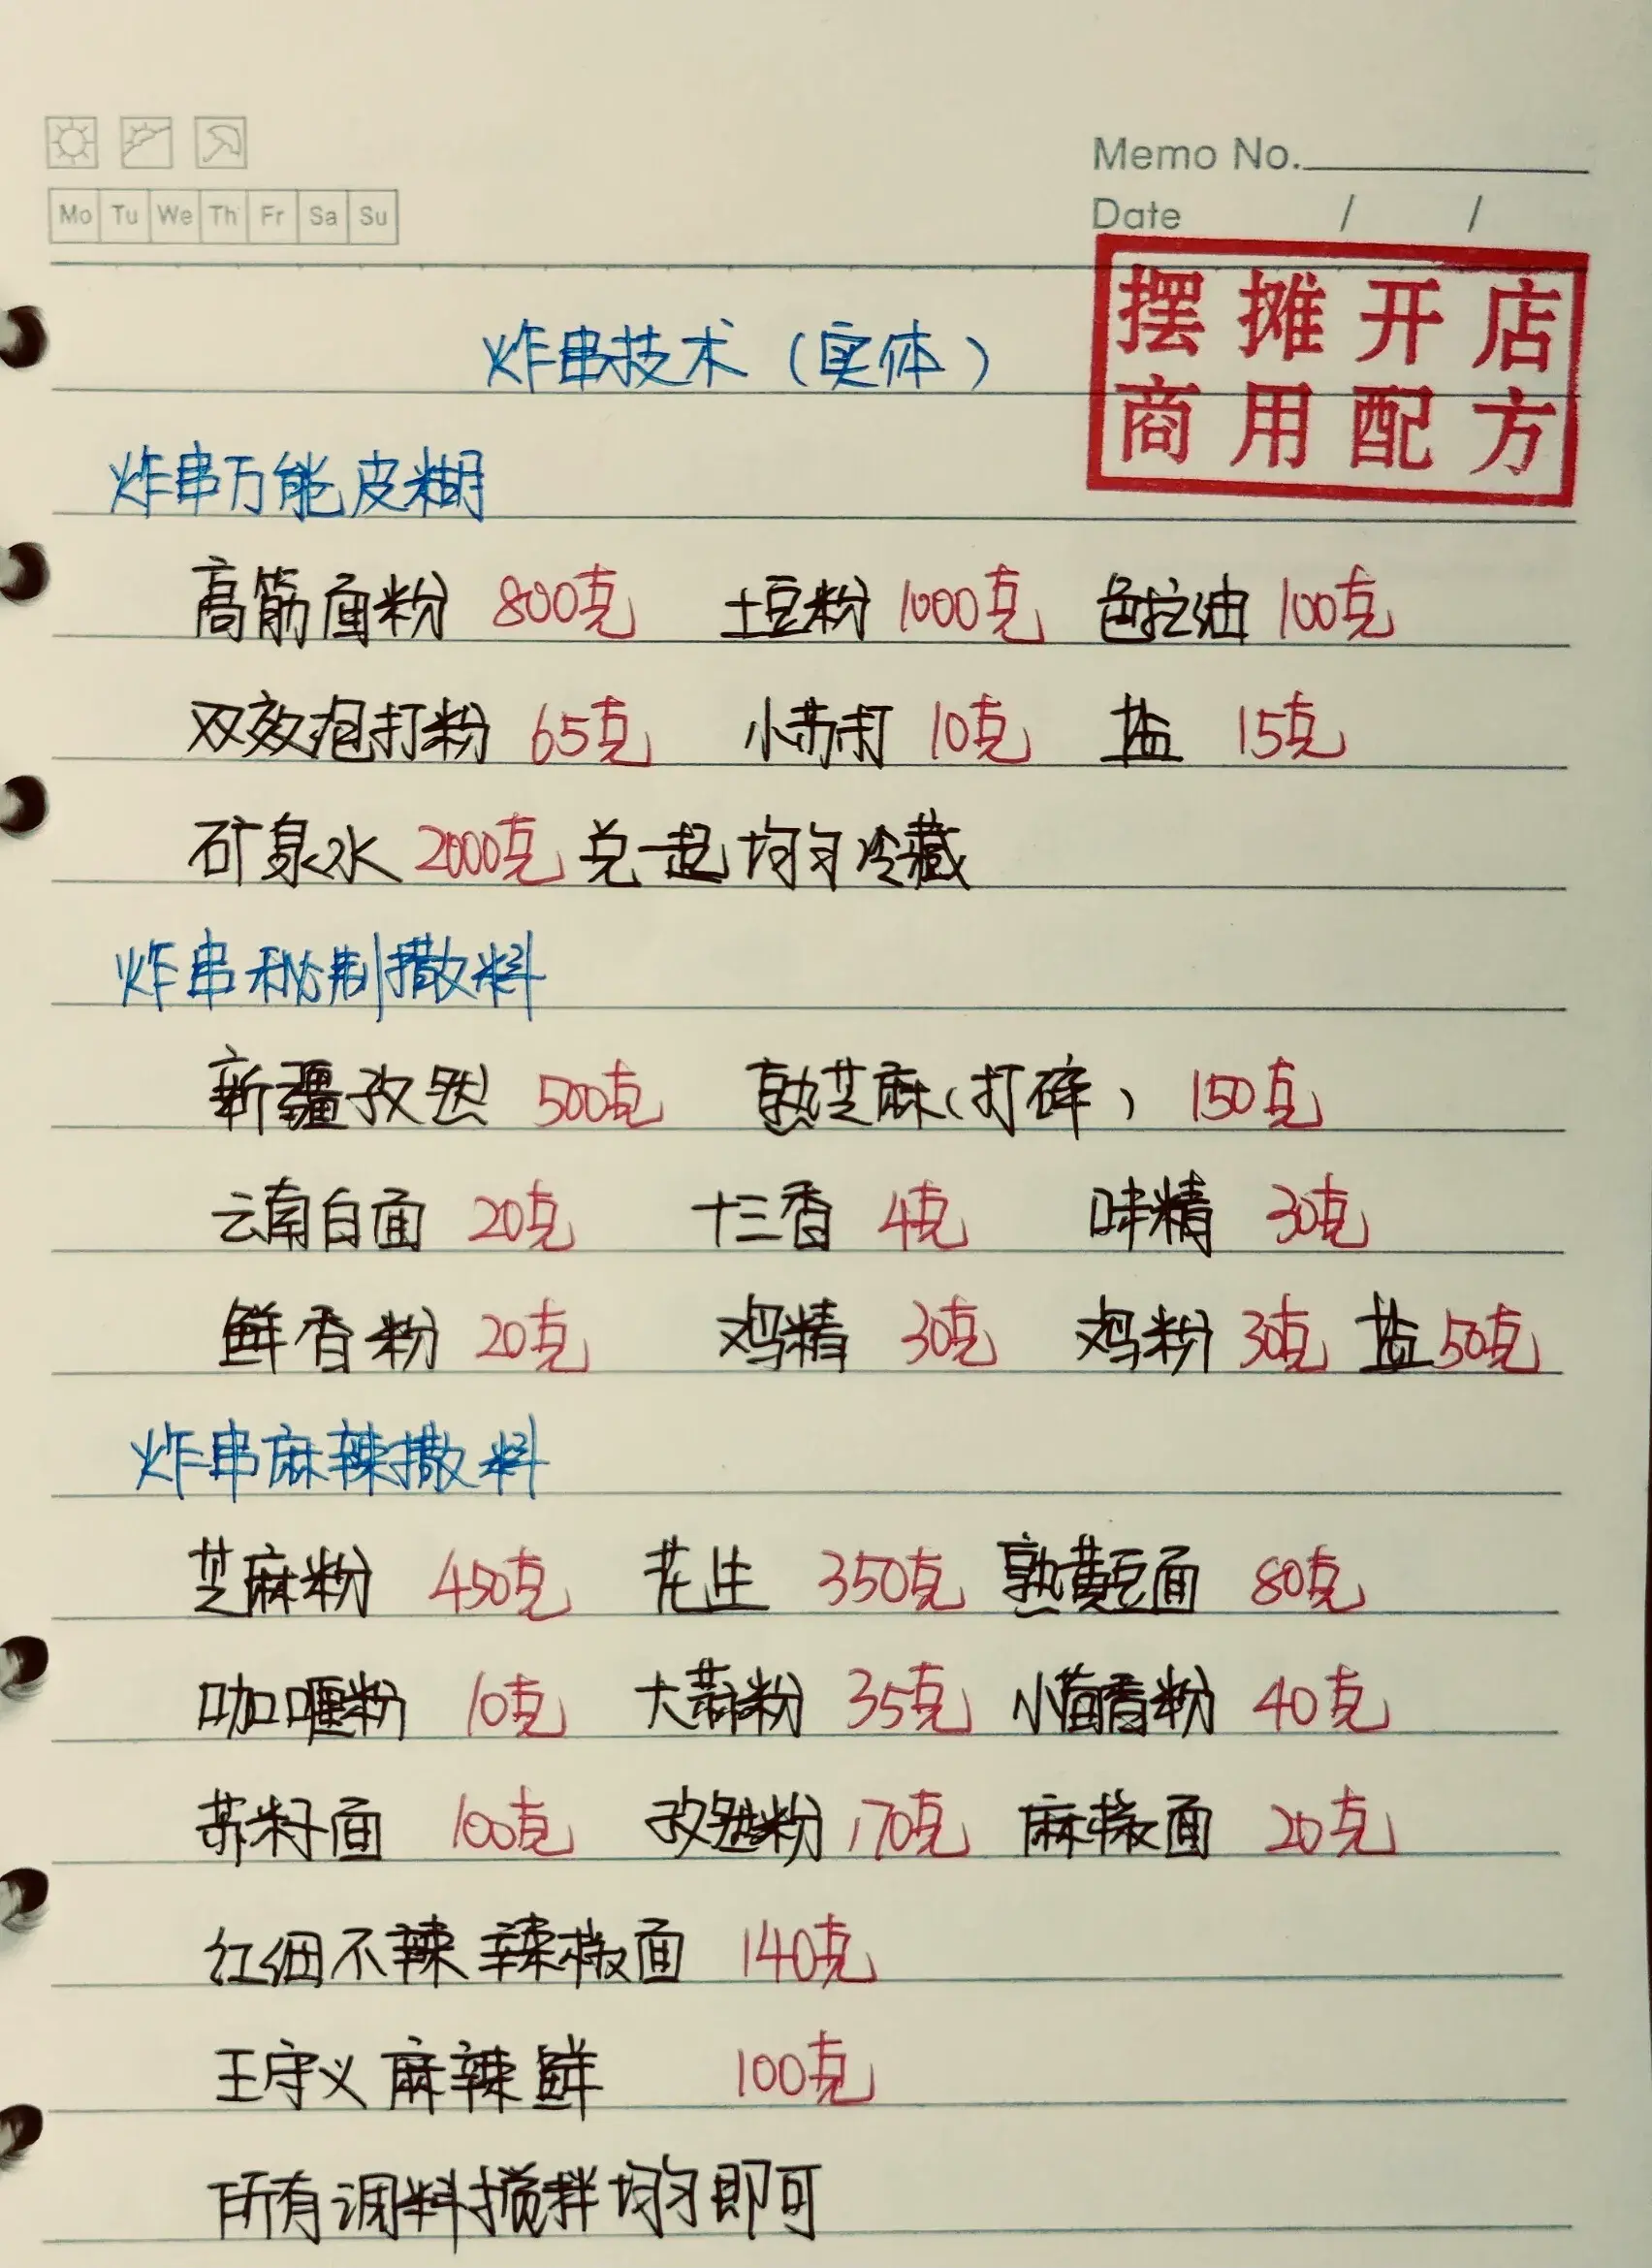 Memo No.
Mo Tu We Th Fr Sa Su
Date / /
摆摊开店
商用配方
炸串技术（实体）
炸串万能皮糊
高筋面粉 800克 土豆粉 1000克 色拉油 100克
双效泡打粉 65克 小苏打 10克 盐 15克
矿泉水 2000克 兑一起均匀冷藏
炸串秘制撒料
新疆孜然 500克 熟芝麻（打碎） 150克
云南白面 20克 十三香 4克 味精 30克
鲜香粉 20克 鸡精 30克 鸡粉 30克 盐 50克
炸串麻辣撒料
芝麻粉 450克 花生 350克 熟黄豆面 80克
咖喱粉 10克 大蒜粉 35克 小茴香粉 40克
苏籽面 100克 孜然粉 170克 麻椒面 20克
红细不辣辣椒面 140克
王守义麻辣鲜 100克
所有调料搅拌均匀即可